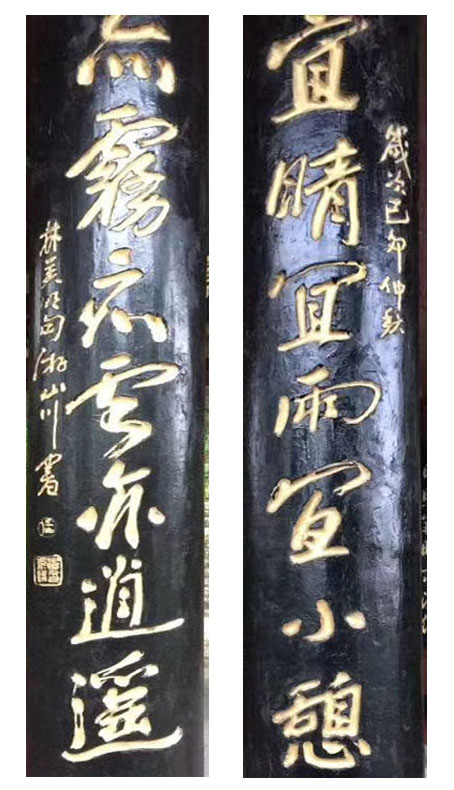 歲次己卯仲秋
宜晴宜雨宜小憩
亦霧亦雲亦逍遙
林句游山川書